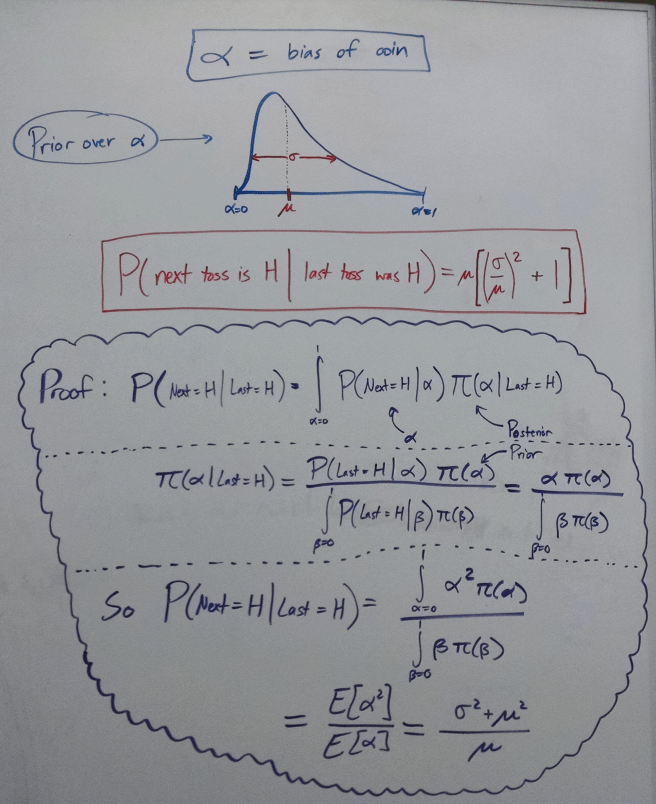 α = bias of coin
Prior over α
σ
α=0
μ
α=1
P(next toss is H | last toss was H) = μ[(σ/μ)² + 1]
Proof: P(Next=H | Last=H) = ∫_{α=0}^{1} P(Next=H | α) π(α | Last=H)
α
Posterior
Prior
π(α | Last=H) = P(Last=H | α) π(α) / ∫_{β=0}^{1} P(Last=H | β) π(β) = α π(α) / ∫_{β=0}^{1} β π(β)
So P(Next=H | Last=H) = ∫_{α=0}^{1} α² π(α) / ∫_{β=0}^{1} β π(β)
= E[α²] / E[α] = σ² + μ² / μ